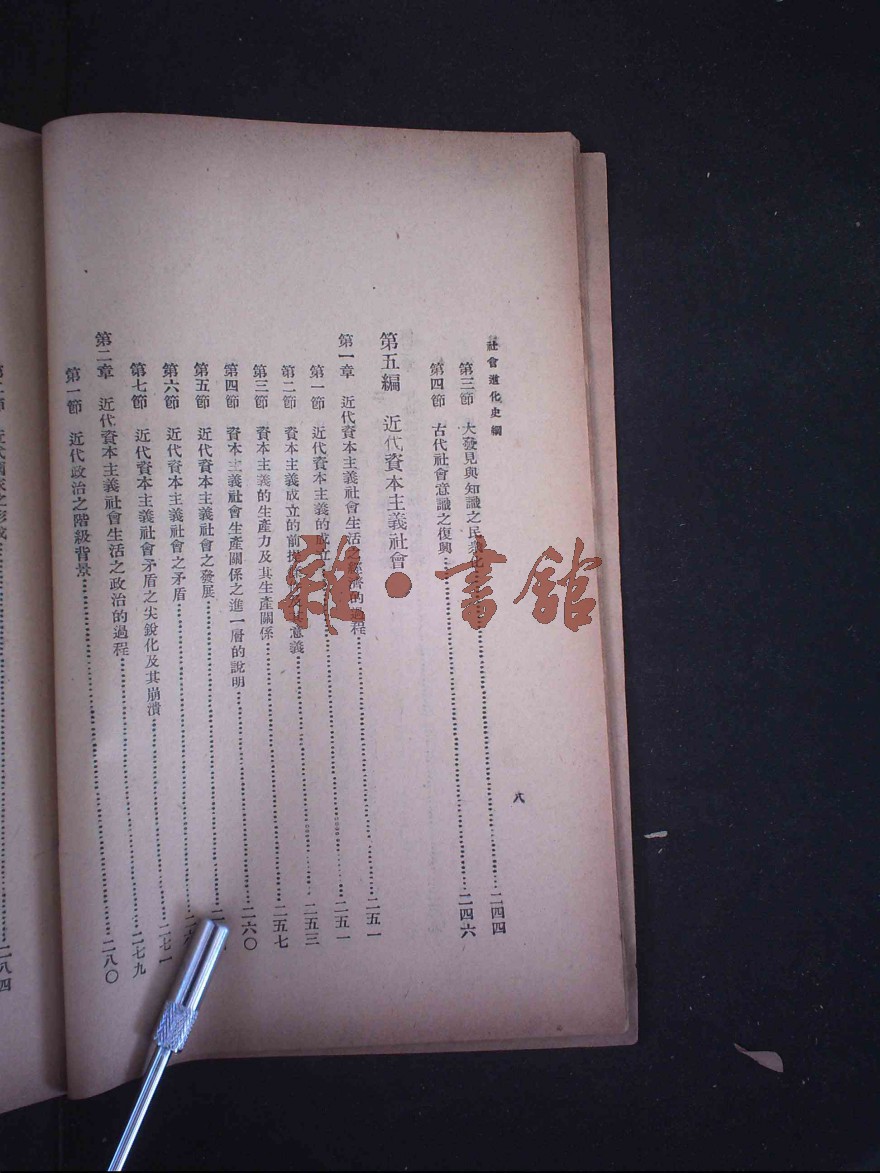 社會進化史綱
第三節 大發見與知識之民衆化……二四四
第四節 古代社會意識之復興……二四六
第五編 近代資本主義社會
第一章 近代資本主義社會生活之經濟的過程……二五一
第一節 近代資本主義的成立……二五一
第二節 資本主義成立的前提條件及其意義……二五三
第三節 資本主義的生產力及其生產關係……二五七
第四節 資本主義社會生產關係之進一層的說明……二六〇
第五節 近代資本主義社會之發展……二
第六節 近代資本主義社會之矛盾……二六
第七節 近代資本主義社會矛盾之尖銳化及其崩潰……二七一
第二章 近代資本主義社會生活之政治的過程……二七九
第一節 近代政治之階級背景……二八〇
八
第二節 近代國家之形成……二八四
雜·書館